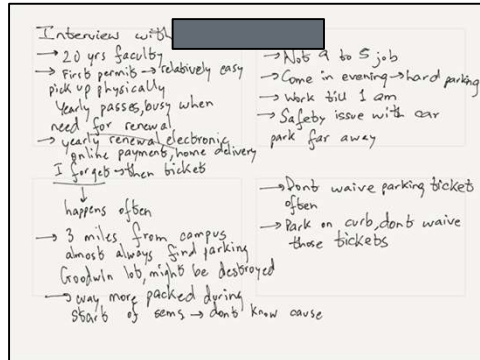 Interview with
→ 20 yrs faculty
→ First permit → relatively easy
pick up physically
Yearly passes, busy when
need for renewal
→ yearly renewal electronic
online payments, home delivery
I forget → then tickets
↓
happens often
→ 3 miles from campus
almost always find parking
Goodwin lot, might be destroyed
→ way more packed during
starts of sems → dont know cause
→ Not 9 to 5 job
→ Come in evening → hard parking
→ Work till 1 am
→ Safety issue with car
park far away
→ Dont waive parking ticket
often
→ Park on curb, dont waive
those tickets